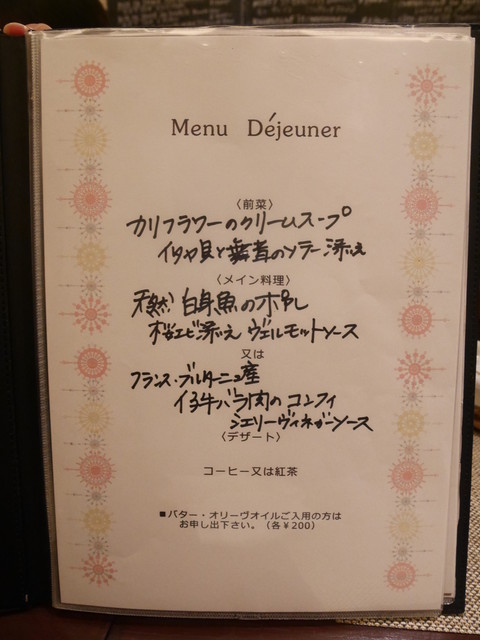 Menu Déjeuner
〈前菜〉
カリフラワーのクリームスープ
イタヤ貝と舞茸のソテー 添え
〈メイン料理〉
天然 白身魚のポワレ
桜エビ添え ヴェルモットソース
又は
フランス・ブルターニュ産
仔牛バラ肉の コンフィ
シェリーヴィネガーソース
〈デザート〉
コーヒー又は紅茶
■バター・オリーヴオイルご入用の方は
お申し出下さい。(各¥200)